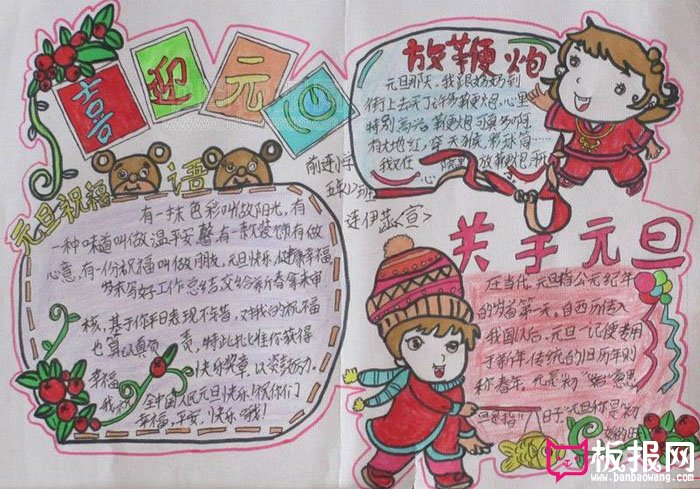 喜迎元
元旦祝福语
有一抹色彩叫做阳光，有
一种味道叫做温馨
心意，有一份祝福叫做朋友，元旦快乐，健康幸福，
岁末写好工作总结交给新春拿来审
核，基于你平日表现不错，对我的祝福
也算认真负责，特此批准你获得
幸福快乐奖章，以资鼓励。
我祝全中国人民元旦快乐！祝你们
幸福，平安，快乐哦！
放鞭炮
元旦那天，我跟妈妈到
街上去买了许多鞭炮，心里
特别高兴。鞭炮可真多啊，
有大地红，穿天猴，彩球筒……
我又在放鞭炮
前进小学
五年
连伊
关于元旦
在当代，元旦指公元纪年
的岁首第一天。自西历传入
我国以后，元旦一词便专用
于新年，传统的旧历年则
称春年。元是"初""始"意思
旦是指"日子"元旦
板报网
www.banbaowang.com